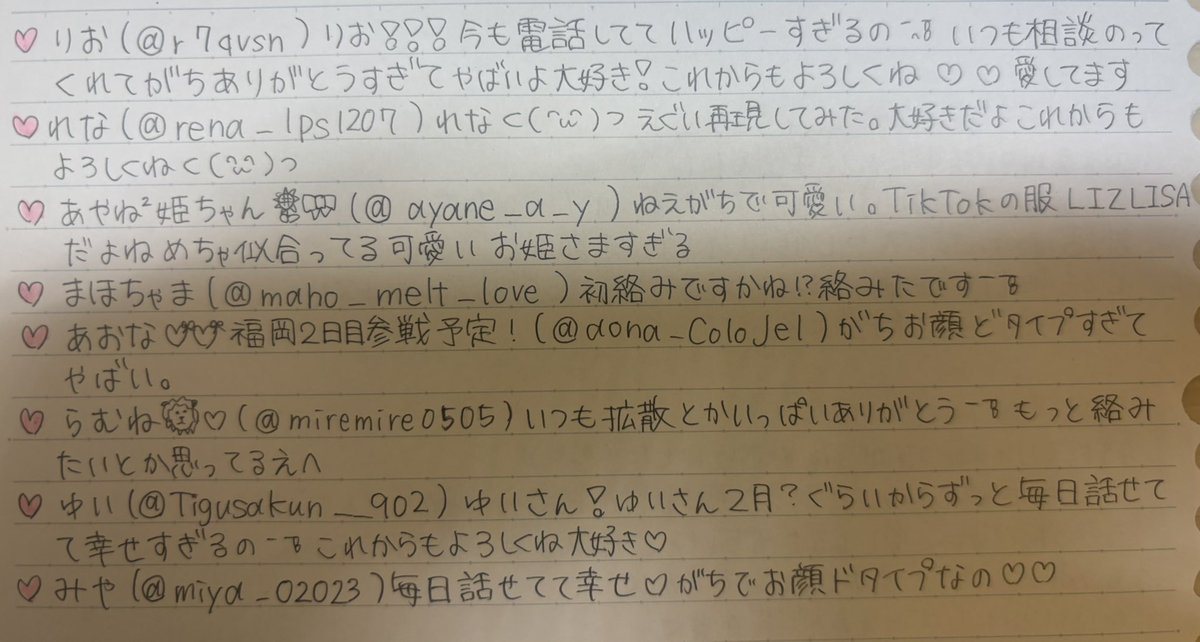 ♡ りお(@r7qvsn)りお!!!今も電話しててハッピーすぎるの いつも相談のって
くれてがちありがとうすぎてやばいよ大好き!これからもよろしくね ♡ ♡ 愛してます
♡ れな(@rena_1ps1207)れなく(^ω^)っ えぐい再現してみた。大好きだよこれからも
よろしくねく(^ω^)っ
♡ あやね²姫ちゃん (@ayane_a_y)ねえがちで可愛い。TikTokの服LIZLISA
だよねめちゃ似合ってる可愛い お姫さますぎる
♡ まほちゃま(@maho_melt_love)初絡みですかね!?絡みたです
♡ あおな♡♡福岡2日目参戦予定!(@aona_ColoJel)がちお顔どタイプすぎて
やばい。
♡ らむね♡(@miremire0505)いつも拡散とかいっぱいありがとう もっと絡み
たいとか思ってるえへ
♡ ゆい(@Tigusakun__902)ゆいさん!ゆいさん2月?ぐらいからずっと毎日話せて
て幸せすぎるの これからもよろしくね大好き♡
♡ みや(@miya_02023)毎日話せてて幸せ♡がちでお顔ドタイプなの♡♡